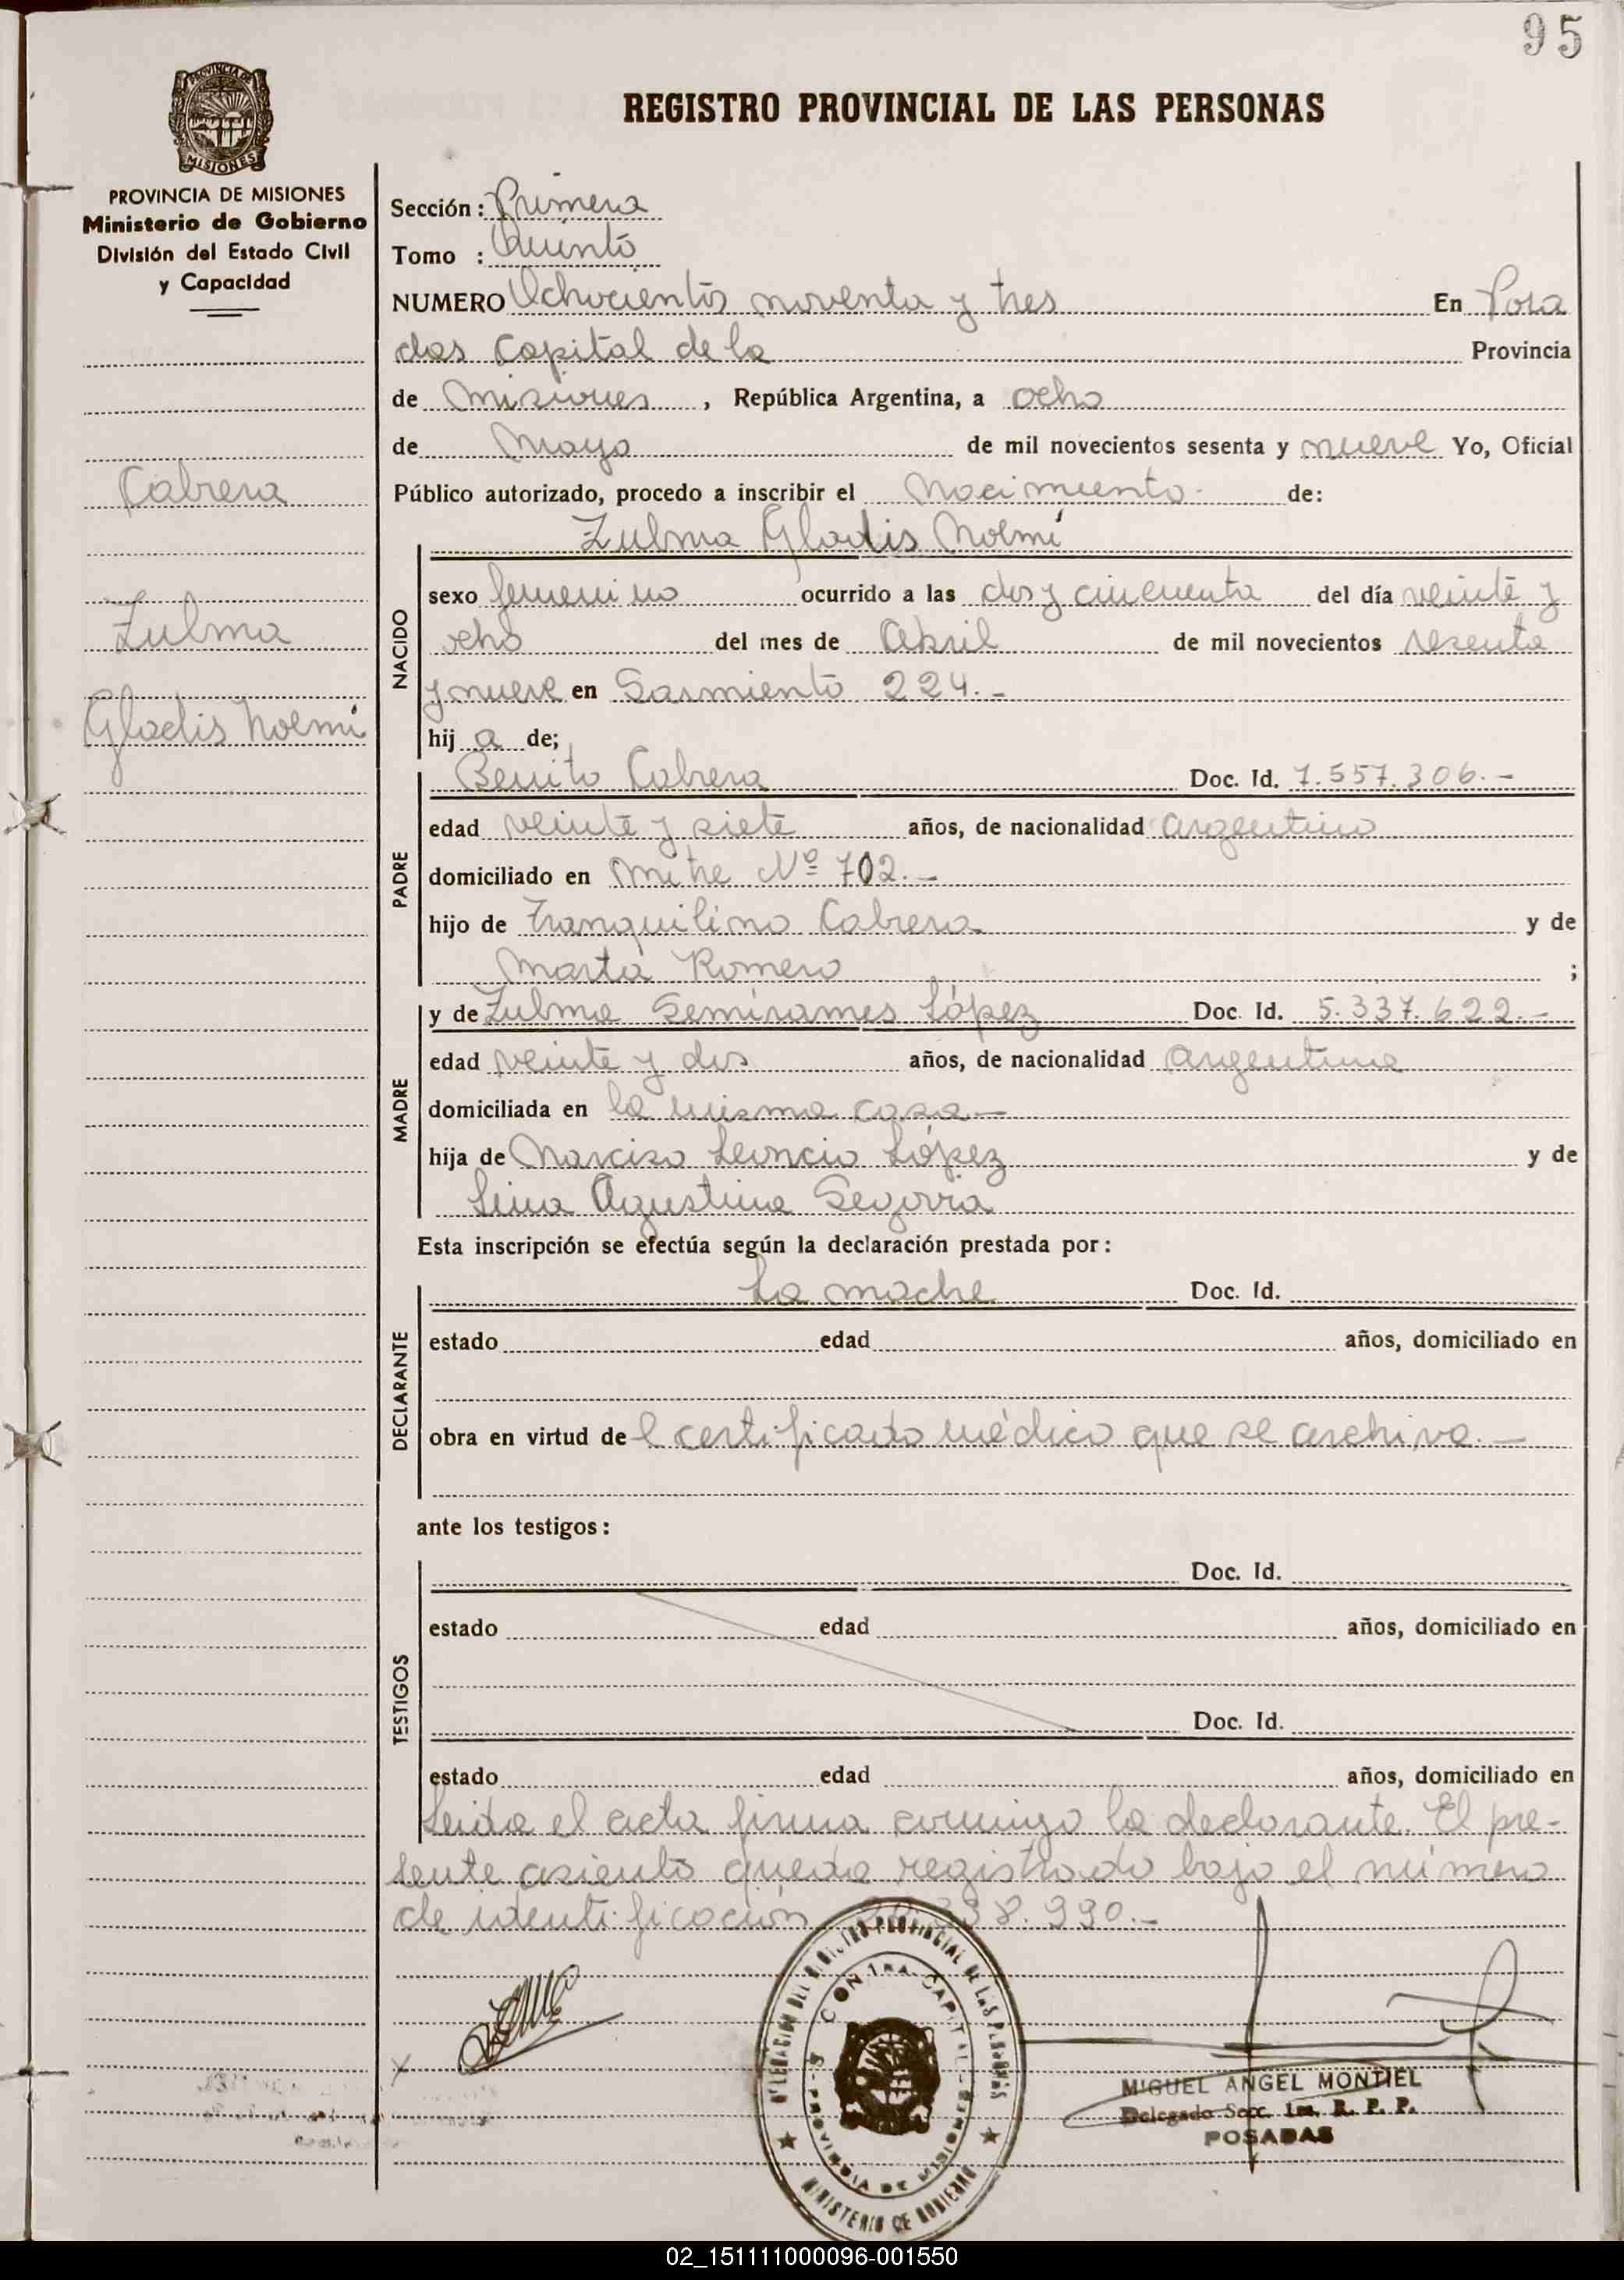 95
PROVINCIA DE
MISIONES
REGISTRO PROVINCIAL DE LAS PERSONAS
PROVINCIA DE MISIONES
Ministerio de Gobierno
División del Estado Civil
y Capacidad
Cabrera
Zulma
Gladis Noemí
Sección: Primera
Tomo : Quinto
NUMERO Ochocientos noventa y tres En Posa
das Capital de la Provincia
de Misiones , República Argentina, a ocho
de Mayo de mil novecientos sesenta y nueve Yo, Oficial
Público autorizado, procedo a inscribir el Nacimiento- de:
Zulma Gladis Noemí
NACIDO
sexo femenino ocurrido a las dos y cincuenta del día veinte y
ocho del mes de Abril de mil novecientos sesenta
y nueve en Sarmiento 224.-
hij a de;
Benito Cabrera Doc. Id. 7.557.306.-
PADRE
edad veinte y siete años, de nacionalidad argentino
domiciliado en Mitre Nº 702.-
hijo de Tranquilino Cabrera y de
Marta Romero ;
y de Zulma Semirames López Doc. Id. 5.337.622.-
MADRE
edad veinte y dos años, de nacionalidad argentina
domiciliada en la misma casa-
hija de Narciso Leoncio López y de
Lina Agustina Segovia
Esta inscripción se efectúa según la declaración prestada por:
La madre Doc. Id.
DECLARANTE
estado edad años, domiciliado en
obra en virtud del certificado médico que se archiva.-
ante los testigos:
Doc. Id.
TESTIGOS
estado edad años, domiciliado en
Doc. Id.
estado edad años, domiciliado en
Leida el acta firma conmigo la declarante. El pre-
sente asiento queda registrado bajo el número
de identificación 338.990.-
REGISTRO PROVINCIAL DE LAS PERSONAS
CAPITAL
PROVINCIA DE MISIONES
MINISTERIO DE GOBIERNO
MIGUEL ANGEL MONTIEL
Delegado Secc. 1ra. R. P. P.
POSADAS
02_151111000096-001550